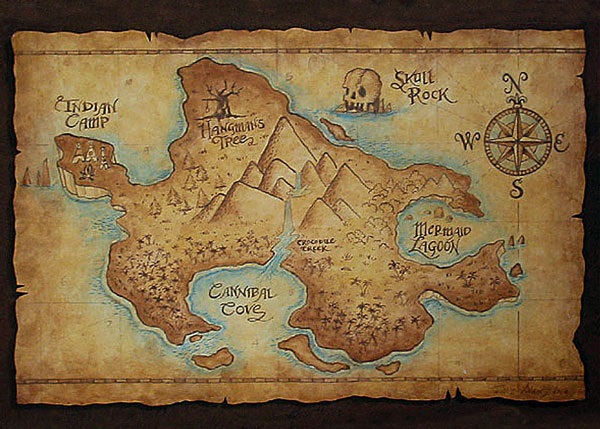 Indian
Camp
Hangman's
Tree
Skull
Rock
N
W
E
S
Mermaid
Lagoon
Crocodile
Creek
Cannibal
Cove